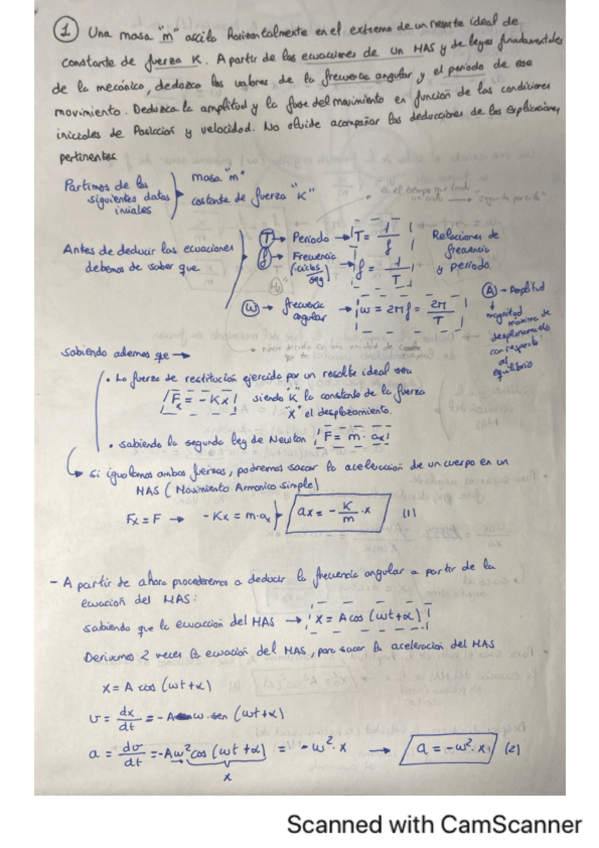 ① Una masa "m" oscila horizontalmente en el extremo de un resorte ideal de
constante de fuerza K. A partir de las ecuaciones de un MAS y de leyes fundamentales
de la mecánica, deduzca los valores de la frecuencia angular y el periodo de ese
movimiento. Deduzca la amplitud y la fase del movimiento en función de las condiciones
iniciales de Posicion y velocidad. No olvide acompañar las deducciones de las explicaciones
pertinentes
Partimos de los siguientes datos iniciales
masa "m"
costante de fuerza "K"
Antes de deducir las ecuaciones debemos de saber que
T → Periodo → T = 1/f
f → Frecuencia (ciclos/seg) → f = 1/T
Relaciones de frecuencia y periodo
ω → frecuencia angular → ω = 2πf = 2π/T
A → Amplitud
magnitud máxima de desplazamiento con respecto al equilibrio
Sabiendo ademas que →
• La fuerza de restitución ejercida por un resorte ideal
Fx = -Kx siendo "K" la constante de la fuerza
"x" el desplazamiento.
• sabiendo la segunda ley de Newton F = m·ax
si igualamos ambas fuerzas, podremos sacar la aceleracion de un cuerpo en un
MAS (Movimiento Armonico simple)
Fx = F → -Kx = m·ax } ax = -K/m · x (1)
- A partir de ahora procederemos a deducir la frecuencia angular a partir de la
ecuacion del MAS:
sabiendo que la ecuacion del MAS → x = A cos (ωt+α)
Derivamos 2 veces la ecuacion del MAS, para sacar la aceleración del MAS
x = A cos (ωt+α)
v = dx/dt = -A ω·sen (ωt+α)
a = dv/dt = -Aω² cos (ωt+α) = -ω²·x → a = -ω²·x (2)
x
Scanned with CamScanner